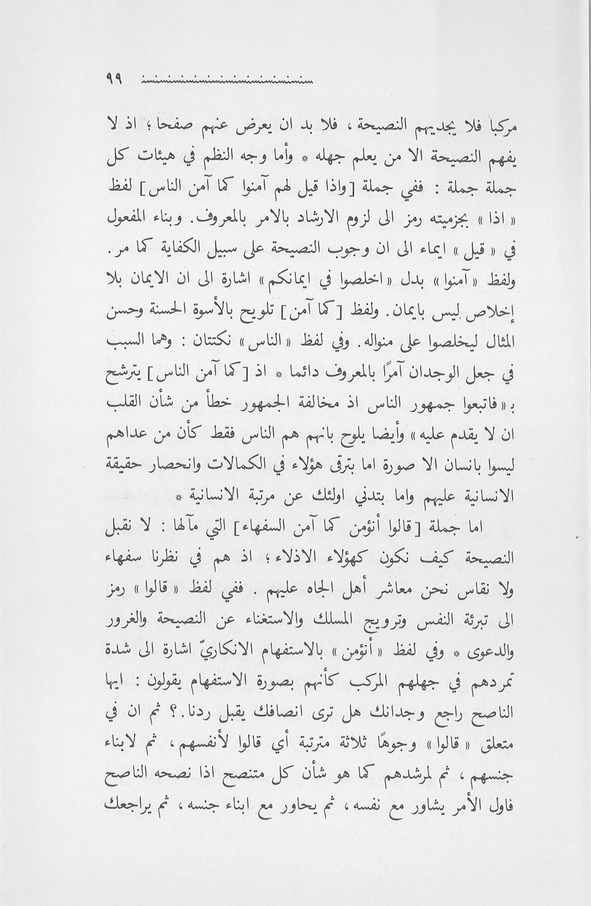 ٩٩
مركبا فلا يجديهم النصيحة، فلا بد ان يعرض عنهم صفحا؛ اذ لا
يفهم النصيحة الا من يعلم جهله * وأما وجه النظم في هيئات كل
جملة جملة : ففي جملة [واذا قيل لهم آمنوا كما آمن الناس] لفظ
«اذا» بجزميته رمز الى لزوم الارشاد بالامر بالمعروف. وبناء المفعول
في «قيل» ايماء الى ان وجوب النصيحة على سبيل الكفاية كما مر.
ولفظ «آمنوا» بدل «اخلصوا في ايمانكم» اشارة الى ان الايمان بلا
إخلاص ليس بايمان. ولفظ [كما آمن] تلويح بالأسوة الحسنة وحسن
المثال ليخلصوا على منواله. وفي لفظ «الناس» نكتتان : وهما السبب
في جعل الوجدان آمرًا بالمعروف دائما * اذ [كما آمن الناس] يترشح
بـ «فاتبعوا جمهور الناس اذ مخالفة الجمهور خطأ من شأن القلب
ان لا يقدم عليه» وأيضا يلوح بانهم هم الناس فقط كأن من عداهم
ليسوا بانسان الا صورة اما بترقى هؤلاء في الكمالات وانحصار حقيقة
الانسانية عليهم واما بتدني اولئك عن مرتبة الانسانية *
اما جملة [قالوا أنؤمن كما آمن السفهاء] التي مآلها : لا نقبل
النصيحة كيف نكون كهؤلاء الاذلاء؛ اذ هم في نظرنا سفهاء
ولا نقاس نحن معاشر أهل الجاه عليهم . ففي لفظ «قالوا» رمز
الى تبرئة النفس وترويج المسلك والاستغناء عن النصيحة والغرور
والدعوى * وفي لفظ «أنؤمن» بالاستفهام الانكاريّ اشارة الى شدة
تمردهم في جهلهم المركب كأنهم بصورة الاستفهام يقولون : ايها
الناصح راجع وجدانك هل ترى انصافك يقبل ردنا.؟ ثم ان في
متعلق «قالوا» وجوهًا ثلاثة مترتبة أي قالوا لأنفسهم، ثم لابناء
جنسهم، ثم لمرشدهم كما هو شأن كل متنصح اذا نصحه الناصح
فاول الأمر يشاور مع نفسه، ثم يحاور مع ابناء جنسه، ثم يراجعك